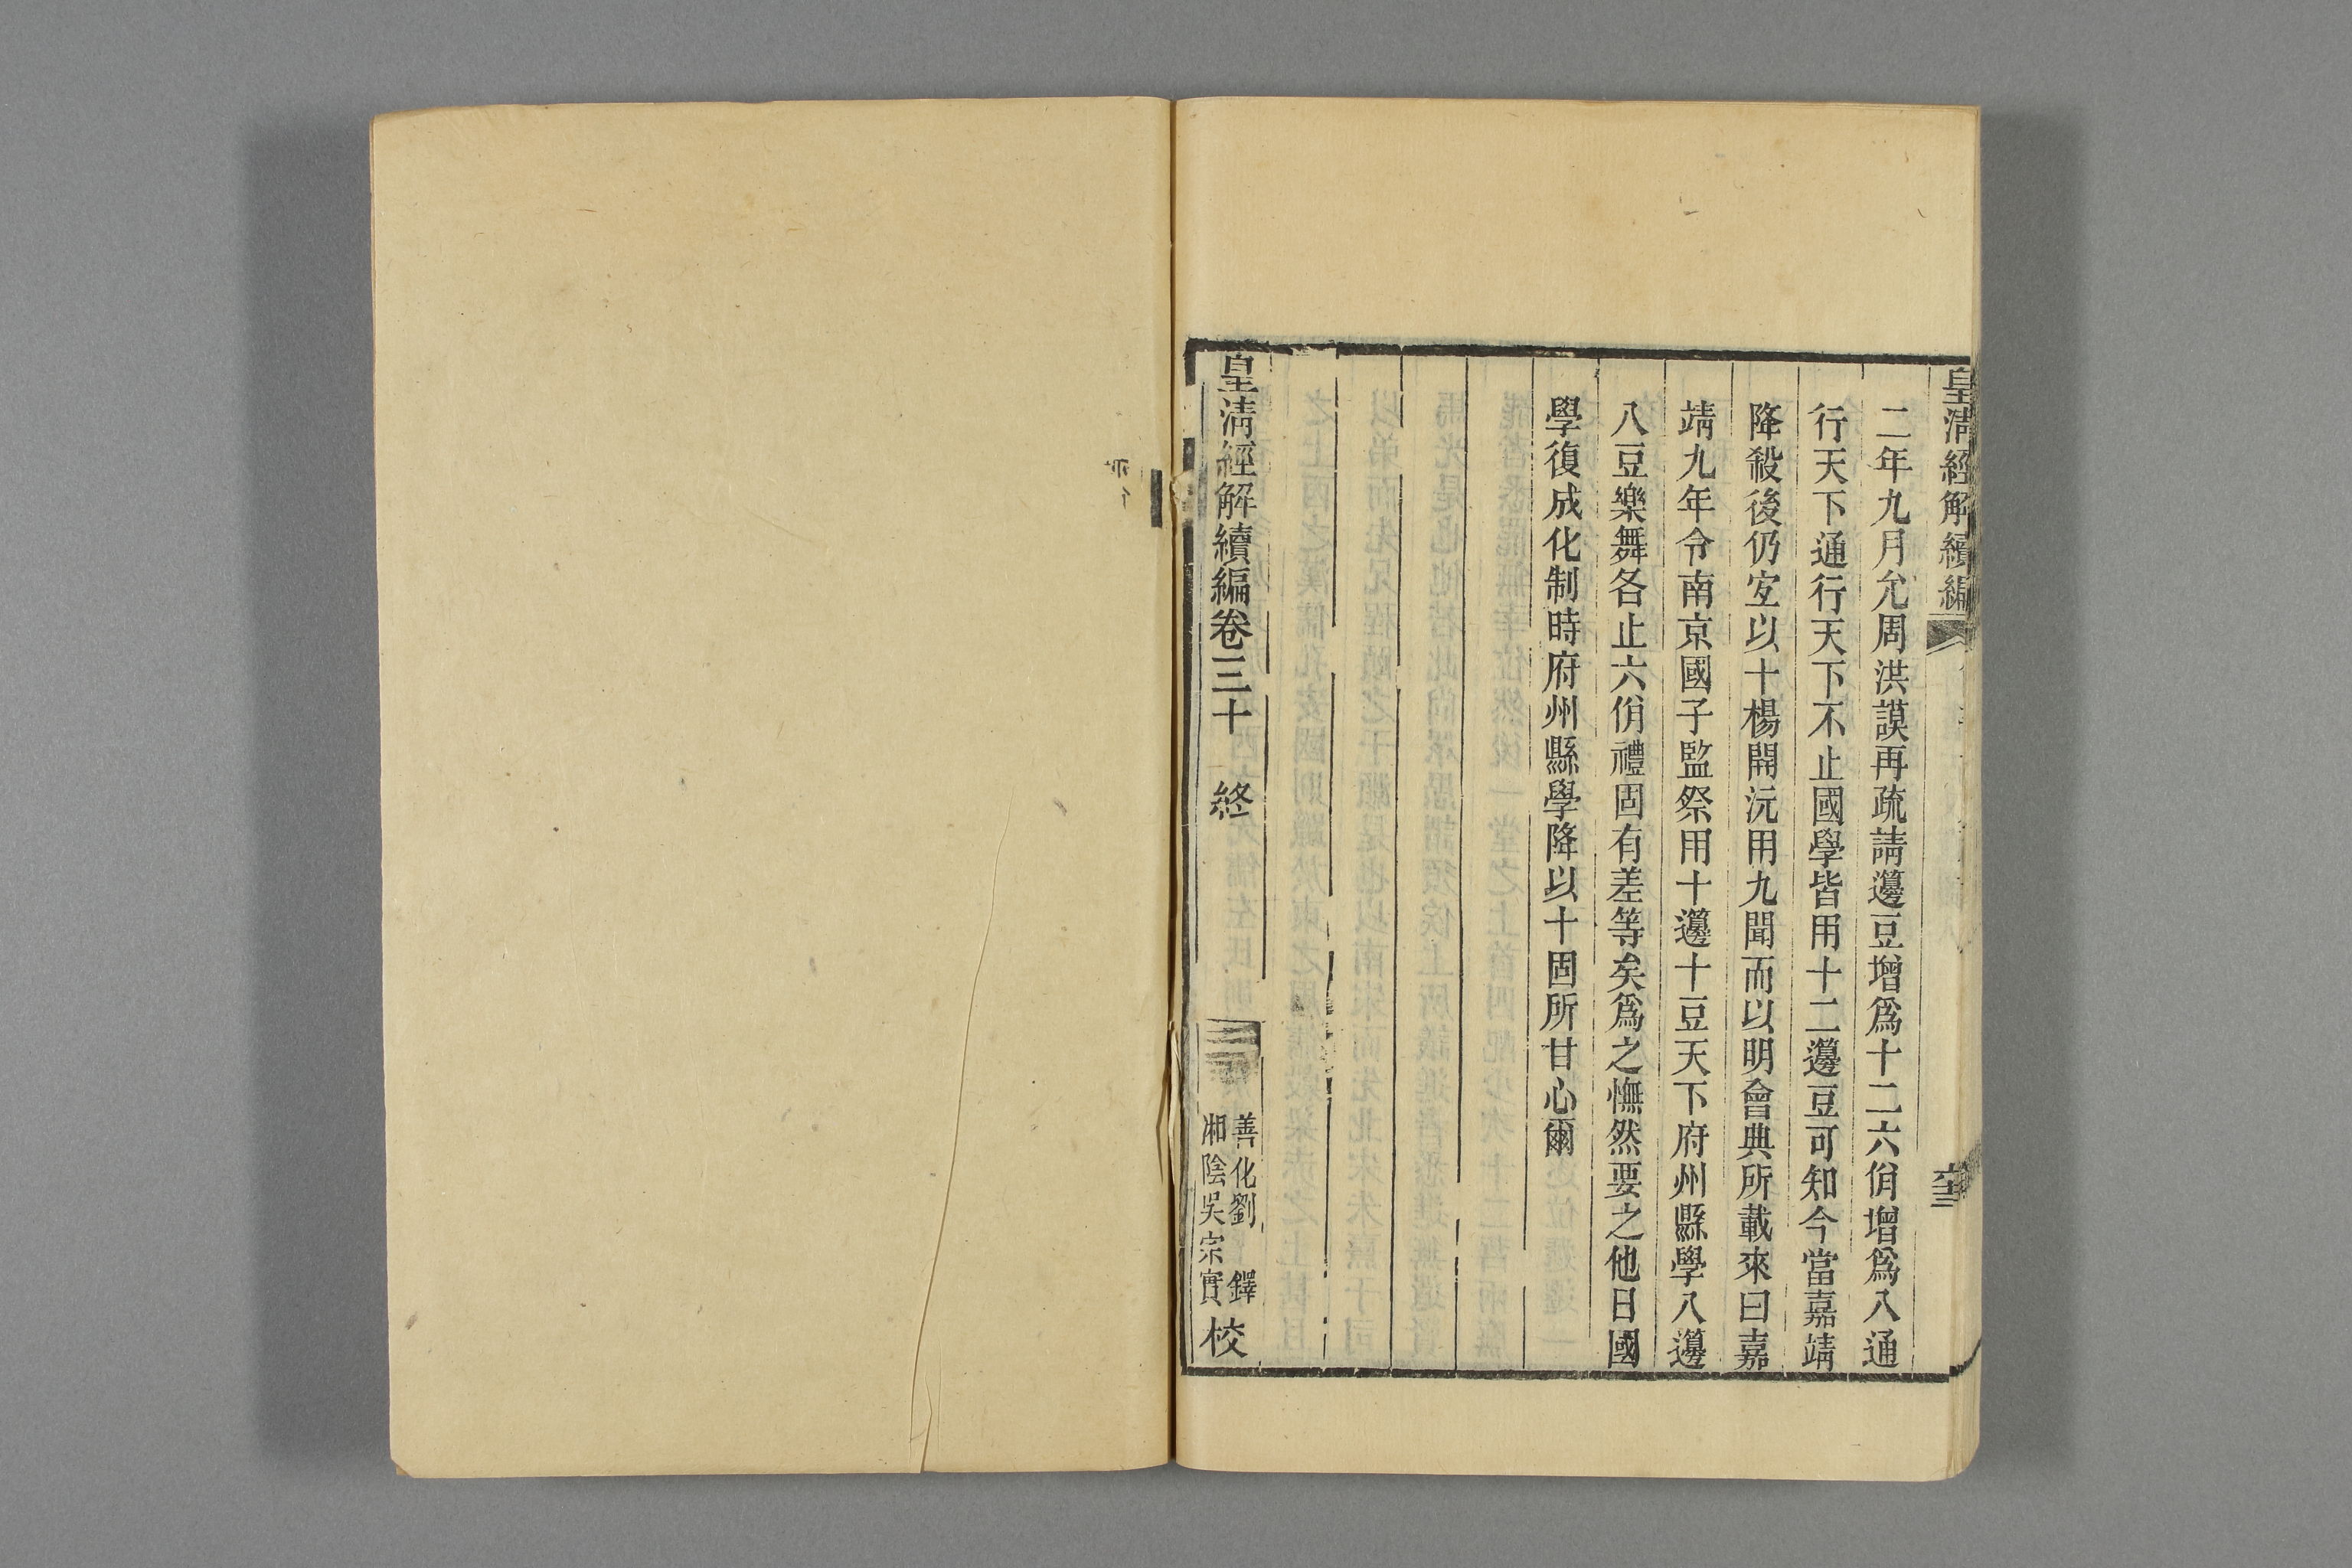 皇清經解續編
二年九月允周洪謨再疏請籩豆增爲十二六佾增爲八通
行天下通行天下不止國學皆用十二籩豆可知今當嘉靖
降殺後仍宐以十楊開沅用九聞而以明會典所載來曰嘉
靖九年令南京國子監祭用十籩十豆天下府州縣學八籩
八豆樂舞各止六佾禮固有差等矣爲之憮然要之他日國
學復成化制時府州縣學降以十固所甘心爾
皇清經解續編卷三十　終
善化劉　鐸
湘陰吳宗實
校